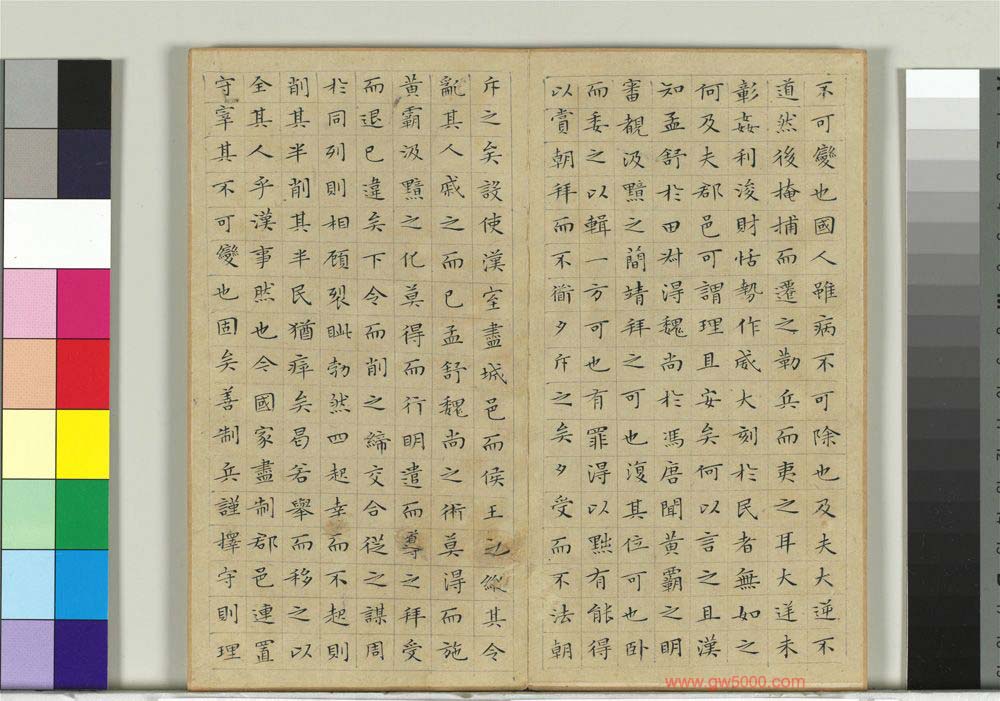 不可變也國人雖病不可除也及夫大逆不
道然後掩捕而遷之勒兵而夷之耳大逆未
彰姦利浚財怙勢作威大刻於民者無如之
何及夫郡邑可謂理且安矣何以言之且漢
知孟舒於田叔得魏尚於馮唐聞黃霸之明
審覩汲黯之簡靖拜之可也復其位可也卧
而委之以輯一方可也有罪得以黜有能得
以賞朝拜而不衟夕斥之矣夕受而不法朝
斥之矣設使漢室盡城邑而侯王之縱其令
亂其人戚之而已孟舒魏尚之術莫得而施
黃霸汲黯之化莫得而行明遣而導之拜受
而退已違矣下令而削之締交合從之謀周
於同列則相顧裂眦勃然四起幸而不起則
削其半削其半民猶瘁矣曷若舉而移之以
全其人乎漢事然也令國家盡制郡邑連置
守宰其不可變也固矣善制兵謹擇守則理
www.gw5000.com